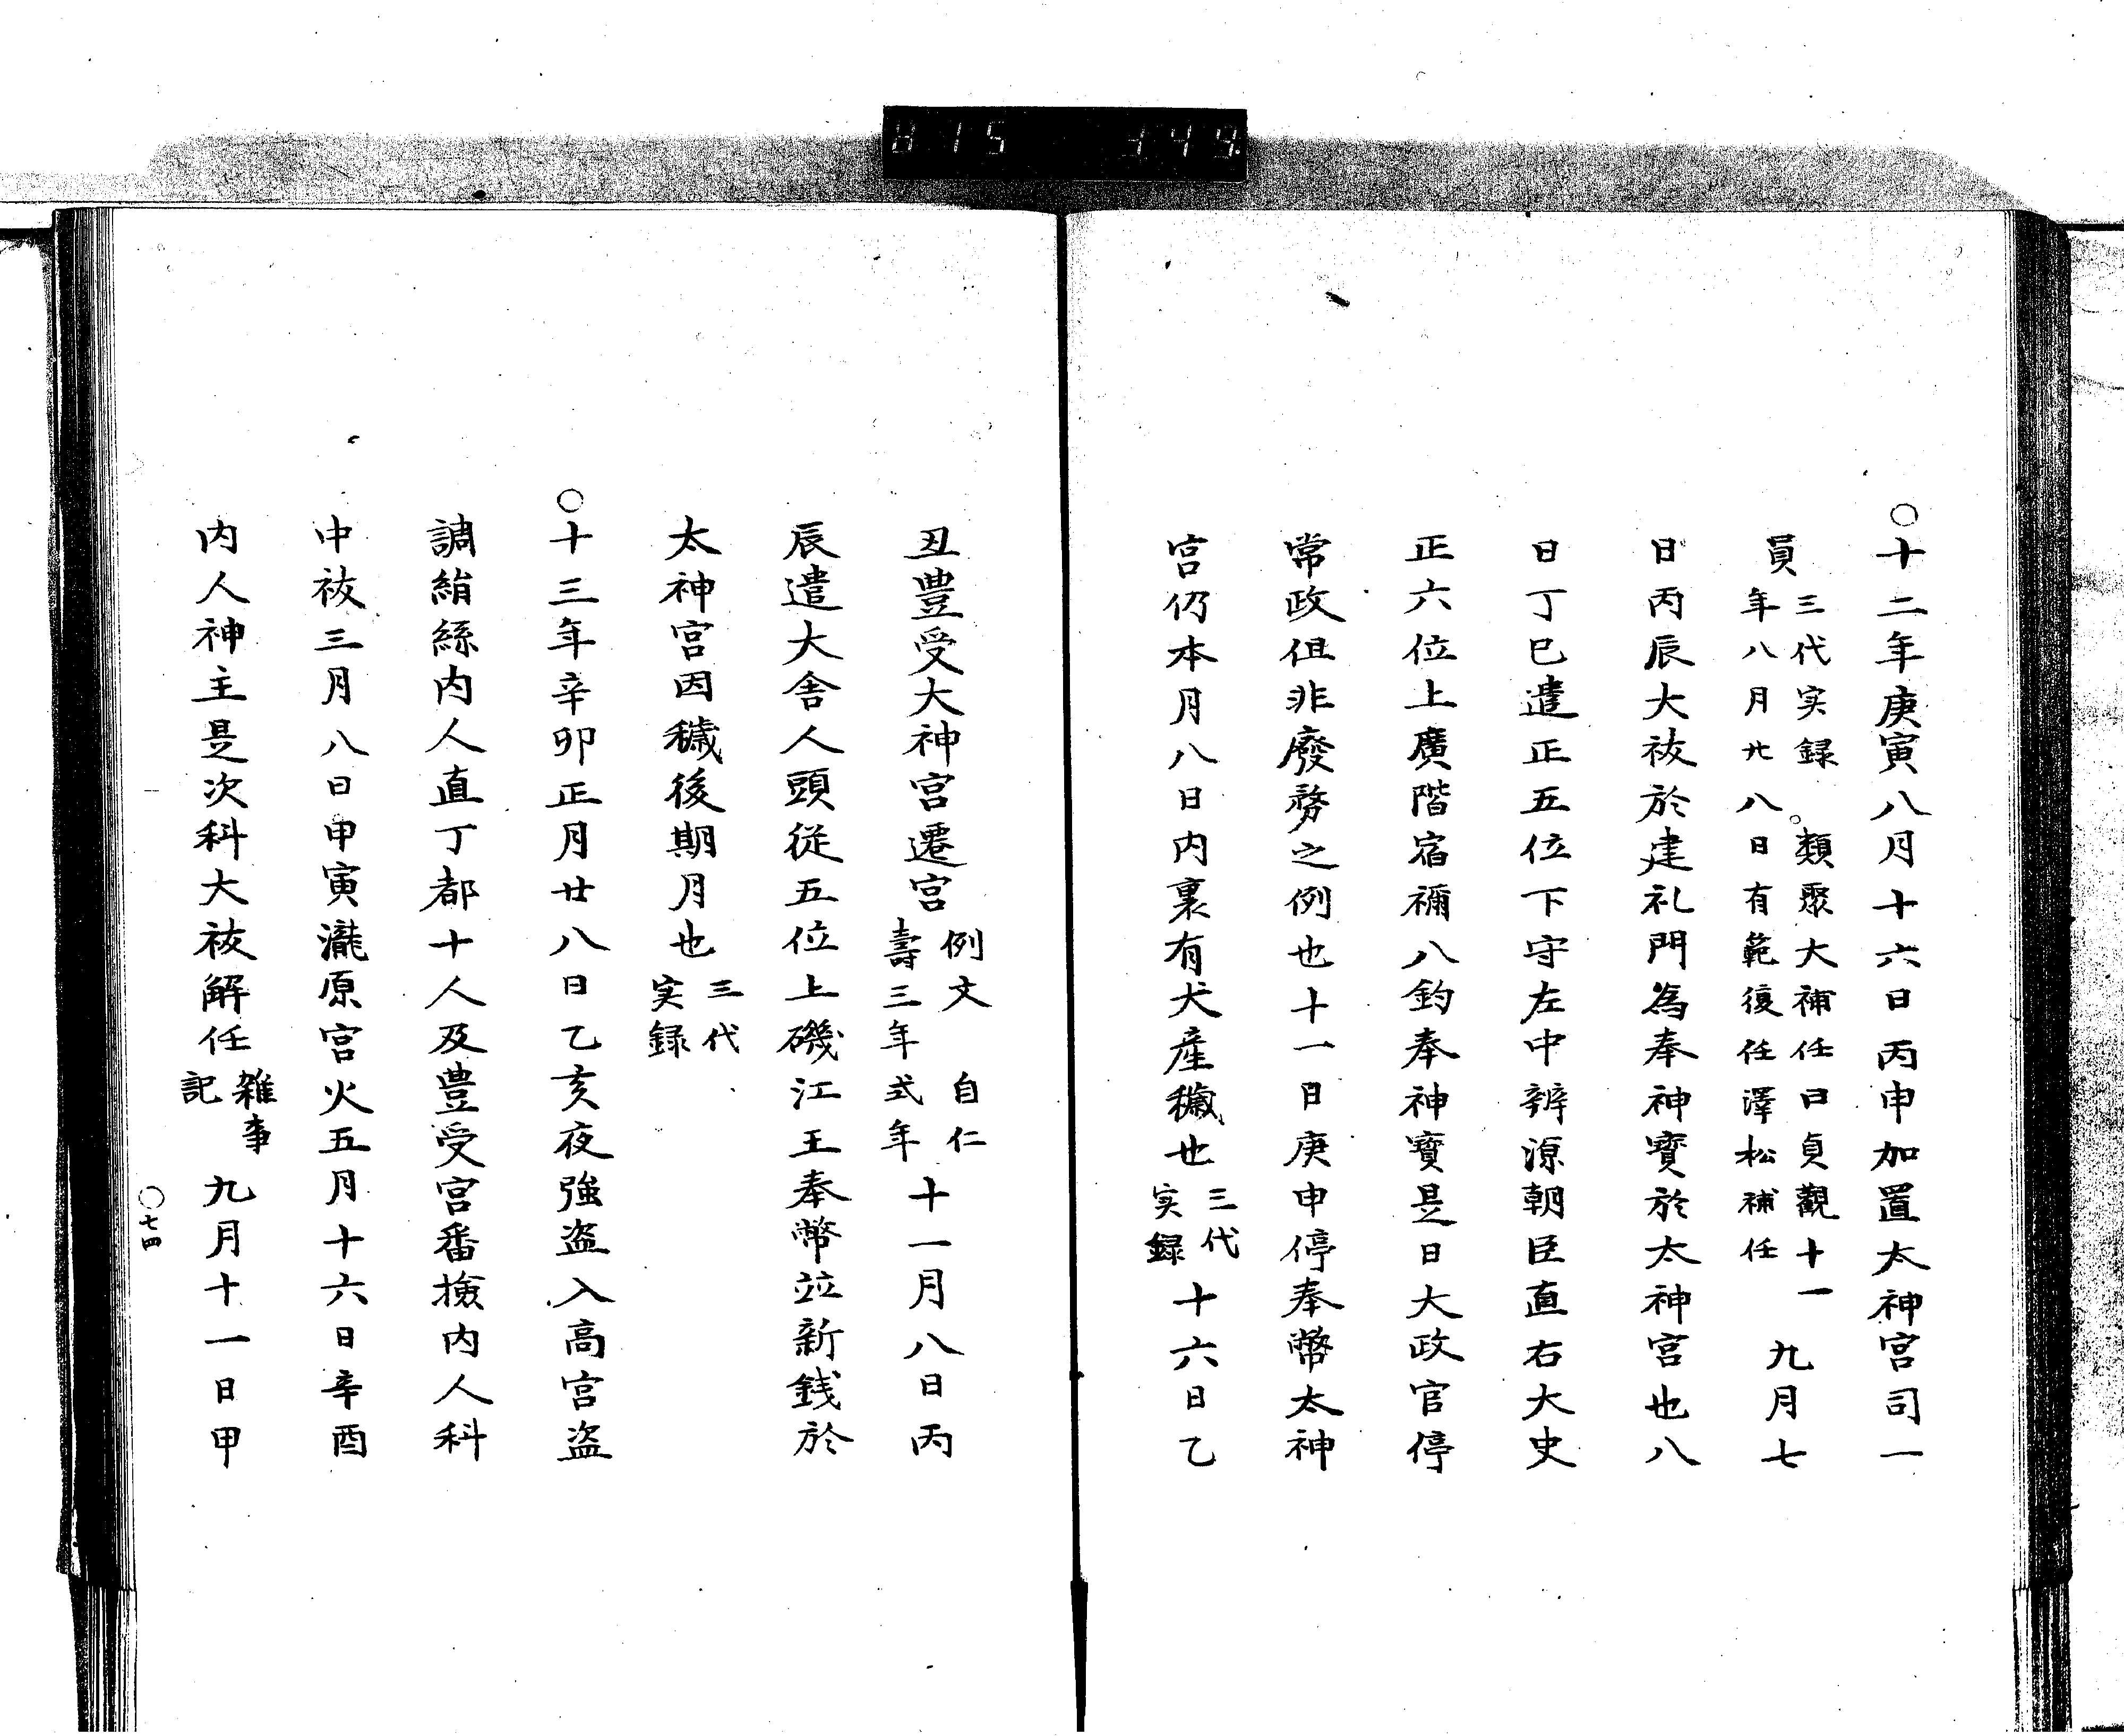 815 349
○十二年庚寅八月十六日丙申加置太神宮司一
員三代実録。類聚大補任曰貞觀十一年八月廿八日有範復任澤松補任九月七
日丙辰大祓於建礼門為奉神寶於太神宮也八
日丁巳遣正五位下守左中辨源朝臣直右大史
正六位上廣階宿禰八釣奉神寶是日大政官停
常政但非廢務之例也十一日庚申停奉幣太神
宮仍本月八日内裏有犬産穢也三代実録十六日乙
丑豊受大神宮遷宮例文自仁壽三年式年十一月八日丙
辰遣大舎人頭從五位上礒江王奉幣竝新銭於
太神宮因穢後期月也三代実録
○十三年辛卯正月廿八日乙亥夜強盗入高宮盗
調絹絲内人直丁都十人及豊受宮番撿内人科
中祓三月八日甲寅瀧原宮火五月十六日辛酉
内人神主是次科大祓解任雑事記九月十一日甲
○七四